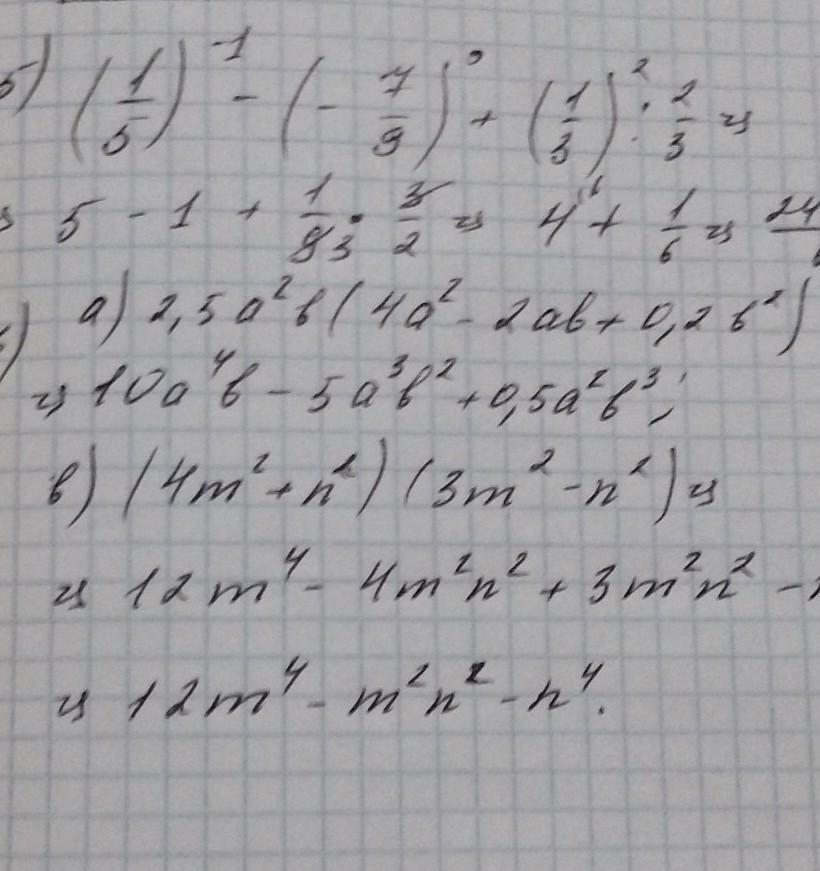 5) (1/5)^-1 - (-7/9)^0 + (1/3)^2 : 2/3 =
= 5 - 1 + 1/9 3 · 3/2 = 4 + 1/6 = 24
а) 2,5a²b(4a² - 2ab + 0,2b²)
= 10a⁴b - 5a³b² + 0,5a²b³;
в) (4m² + n²)(3m² - n²) =
= 12m⁴ - 4m²n² + 3m²n² -
= 12m⁴ - m²n² - n⁴.